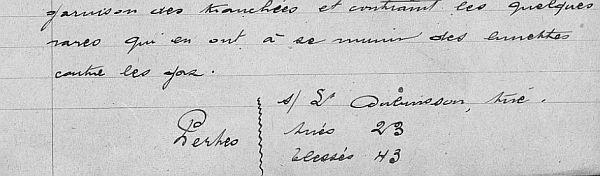 garnison des tranchées et contraint les quelques
rares qui en ont à se munir des lunettes
contre les gaz.
s/ Lt Dubuisson, tué.
Pertes
tués 23
blessés 43